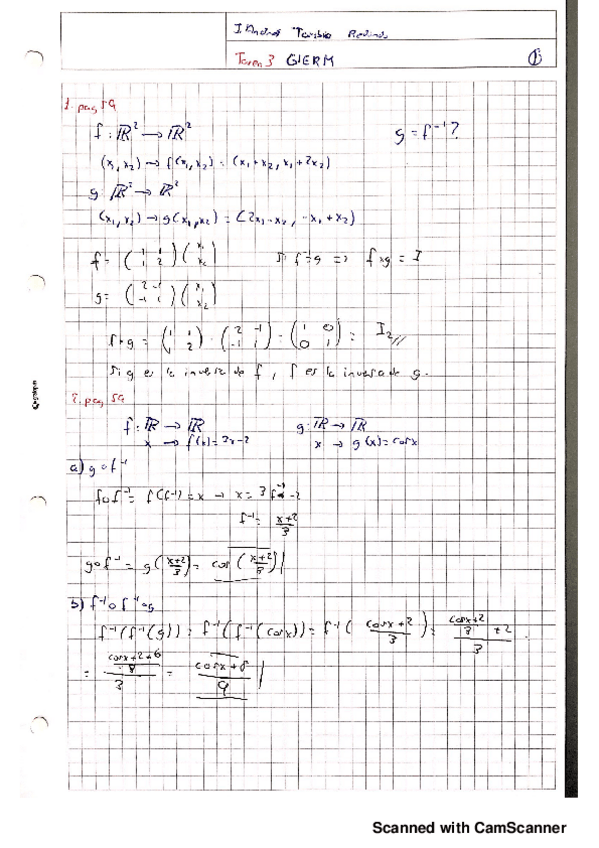 Tarea 3 GIERM
①
1. pag 59
f: ℝ² → ℝ²
g = f⁻¹?
(x₁, x₂) → f(x₁, x₂) = (x₁+x₂, x₁+2x₂)
g: ℝ² → ℝ²
(x₁, x₂) → g(x₁, x₂) = (2x₁-x₂, -x₁+x₂)
f = (1 1; 1 2) (x₁; x₂)
Si f⁻¹=g => f×g = I
g = (2 -1; -1 1) (x₁; x₂)
f×g = (1 1; 1 2) · (2 -1; -1 1) = (1 0; 0 1) = I₂//
Si g es la inversa de f, f es la inversa de g.
2. pag 59
f: ℝ → ℝ
g: ℝ → ℝ
x → f(x)=3x-2
x → g(x)=cosx
a) g o f⁻¹
f o f⁻¹ = f(f⁻¹) = x → x = 3f⁻¹-2
f⁻¹ = (x+2)/3
g o f⁻¹ = g((x+2)/3) = cos((x+2)/3)
b) f⁻¹ o f⁻¹ o g
f⁻¹(f⁻¹(g)) = f⁻¹(f⁻¹(cosx)) = f⁻¹((cosx+2)/3) = ((cosx+2)/3 + 2)/3
= ((cosx+2+6)/3)/3 = (cosx+8)/9
Scanned with CamScanner